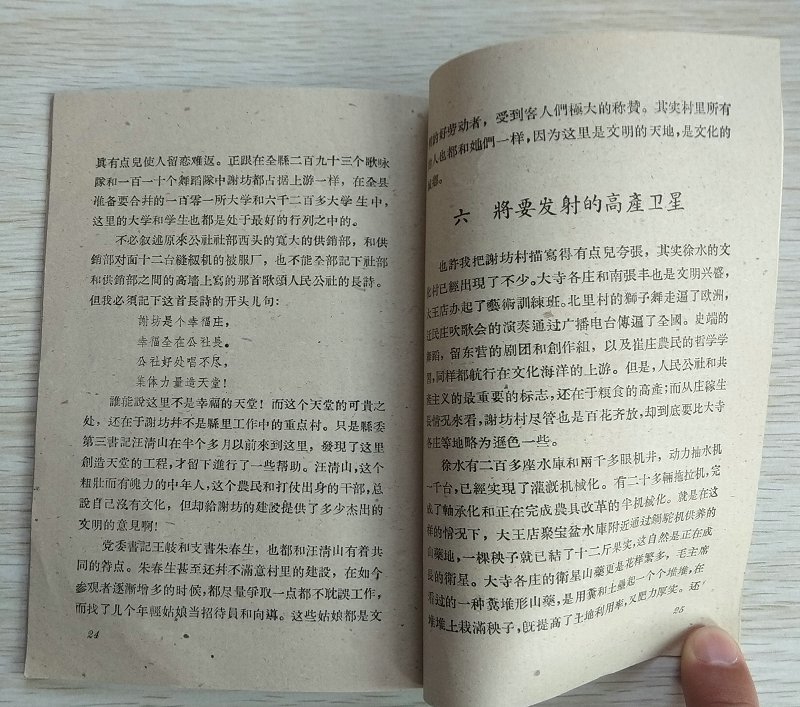 眞有点兒使人留恋难返。正跟在全縣二百九十三个歌咏
隊和一百一十个舞蹈隊中謝坊都占据上游一样，在全县
准备要合并的一百零一所大学和六千二百多大学生中，
这里的大学和学生也都是处于最好的行列之中的。
不必叙述原來公社社部西头的寬大的供銷部，和供
銷部对面十二台缝級机的被服厂，也不能全部記下社部
和供銷部之間的高墙上寫的那首歌頭人民公社的長詩。
但我必須記下这首長詩的开头儿句：
謝坊是个幸福庄，
幸福全在公社長。
公社好处唱不尽，
集体力量造天堂！
誰能說这里不是幸福的天堂！而这个天堂的可貴之
处，还在于謝坊并不是縣里工作中的重点村。只是縣委
第三書記汪清山在半个多月以前來到这里，發現了这里
創造天堂的工程，才留下進行了一些帮助。汪清山，这个
粗壯而有魄力的中年人，这个農民和打仗出身的干部，总
說自己沒有文化，但却給謝坊的建設提供了多少杰出的
文明的意見啊！
党委書記王岐和支書朱春生，也都和汪清山有着共
同的特点。朱春生甚至还并不滿意村里的建設，在如今
参观者逐漸增多的时候，都尽量爭取一点都不耽誤工作，
而找了几个年輕姑娘当招待員和向導。这些姑娘都是文
24
的好劳动者，受到客人們極大的称贊。其实村里所有
人也都和她們一样，因为这里是文明的天地，是文化的
六 將要发射的高產卫星
也許我把謝坊村描寫得有点兒夸張，其实徐水的文
化村已經出現了不少。大寺各庄和南張丰也是文明兴盛，
大王店办起了藝術訓練班。北里村的獅子舞走遍了欧洲，
迁民庄吹歌会的演奏通过广播电台傳遍了全國。史端的
舞蹈，留东营的剧团和創作組，以及崔庄農民的哲学学
習，同样都航行在文化海洋的上游。但是，人民公社和共
產主义的最重要的标志，还在于粮食的高產；而从庄稼生
長情况來看，謝坊村尽管也是百花齐放，却到底要比大寺
各庄等地略为遜色一些。
徐水有二百多座水庫和兩千多眼机井，动力抽水机
一千台，已經实現了灌溉机械化。有二十多辆拖拉机，完
成了軸承化和正在完成農具改革的半机械化。就是在这
样的情况下，大王店聚宝盆水庫附近通过鍋駝机供养的
山藥地，一棵秧子就已結了十二斤果实，这自然是正在成
長的衛星。大寺各庄的衛星山藥更是花样繁多，毛主席
看过的一种糞堆形山藥，是用糞和土壘起一个个堆堆，在
堆堆上栽滿秧子，旣提高了土地利用率，又肥力厚实。还
25